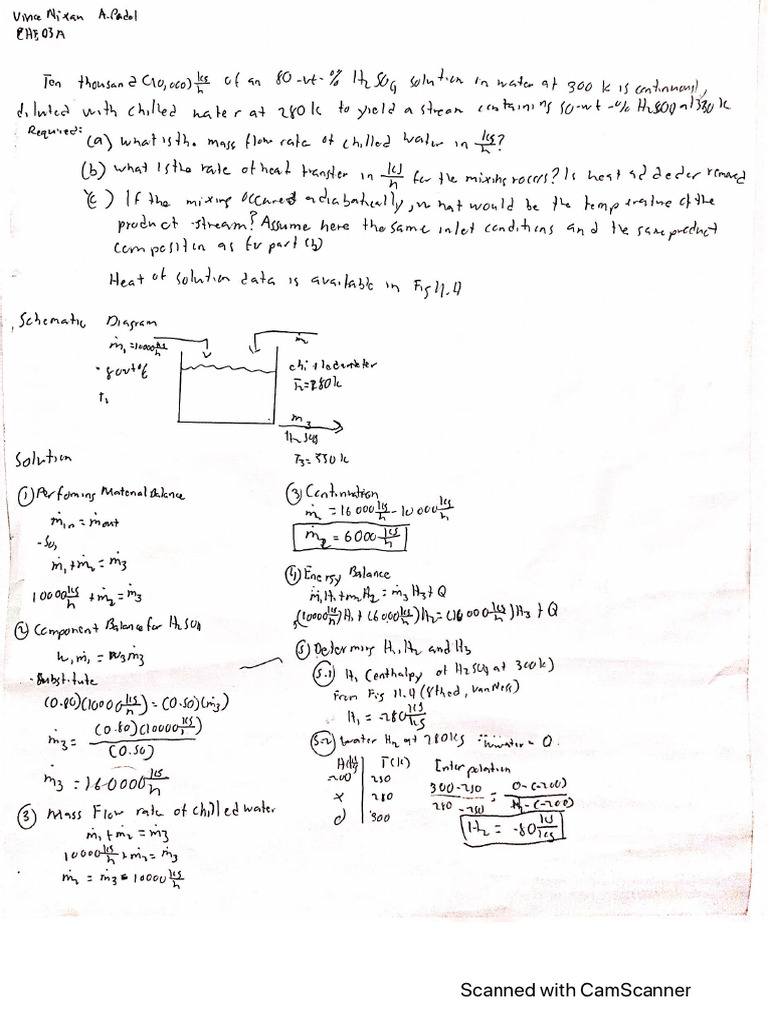 Vince Nixan A. Padol
CHE03A
Ten thousand (10,000) kg/h of an 80-wt-% H2SO4 solution in water at 300 k is continuously
diluted with chilled water at 280k to yield a stream containing 50-wt-% H2SO4 at 330 k
Required:
(a) what is the mass flow rate of chilled water in kg/h?
(b) what is the rate of heat transfer in kJ/h for the mixing process? Is heat added or removed
(c) If the mixing occured adiabatically, what would be the temperature of the
product stream? Assume here the same inlet conditions and the same product
composition as for part (b)
Heat of solution data is available in Fig 11.4
Schematic Diagram
ṁ1=10000 kg/h
ṁ
chilled water
T2=280k
ṁ3
H2SO4
T3=330k
Solution
① Performing Material Balance
ṁin = ṁout
ṁ1+ṁ2 = ṁ3
10000 kg/h + ṁ2 = ṁ3
② Component Balance for H2SO4
w1ṁ1 = w3ṁ3
- Substitute
(0.80)(10000 kg/h) = (0.50)(ṁ3)
ṁ3 = (0.80)(10000 kg/h) / (0.50)
ṁ3 = 160000 kg/h
③ Mass Flow rate of chilled water
ṁ1+ṁ2 = ṁ3
10000 kg/h + ṁ2 = ṁ3
ṁ2 = ṁ3 - 10000 kg/h
③ Continuation
ṁ2 = 16000 kg/h - 10000 kg/h
ṁ2 = 6000 kg/h
④ Energy Balance
ṁ1H1 + ṁ2H2 = ṁ3H3 + Q
(10000 kg/h)H1 + (6000 kg/h)H2 = (16000 kg/h)H3 + Q
⑤ Determing H1, H2 and H3
5.1 H1 (enthalpy of H2SO4 at 300k)
From Fig 11.4 (8th ed, Van Ness)
H1 = -280 kJ/kg
5.2 water H2 at 280kg = 0.
T(k) Interpolation
-200 250
x 280
0 300
300-250 / 280-250 = 0-(-200) / H2-(-200)
H2 = -80 kJ/kg
Scanned with CamScanner